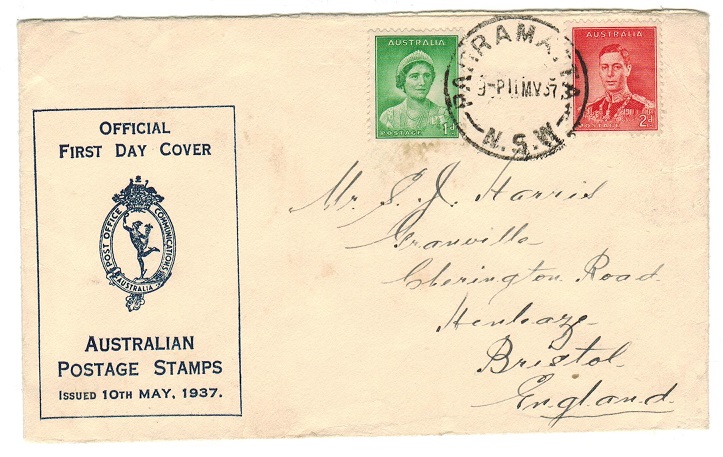 AUSTRALIA
POSTAGE
1d
PARRAMATTA
9-P 11 MY 37
N.S.W
AUSTRALIA
POSTAGE
2d
OFFICIAL
FIRST DAY COVER
POST OFFICE COMMUNICATIONS
AUSTRALIA
AUSTRALIAN
POSTAGE STAMPS
ISSUED 10TH MAY, 1937.
Mr. S. J. Harris
Granville
Cherington Road
Henleaze
Bristol
England.